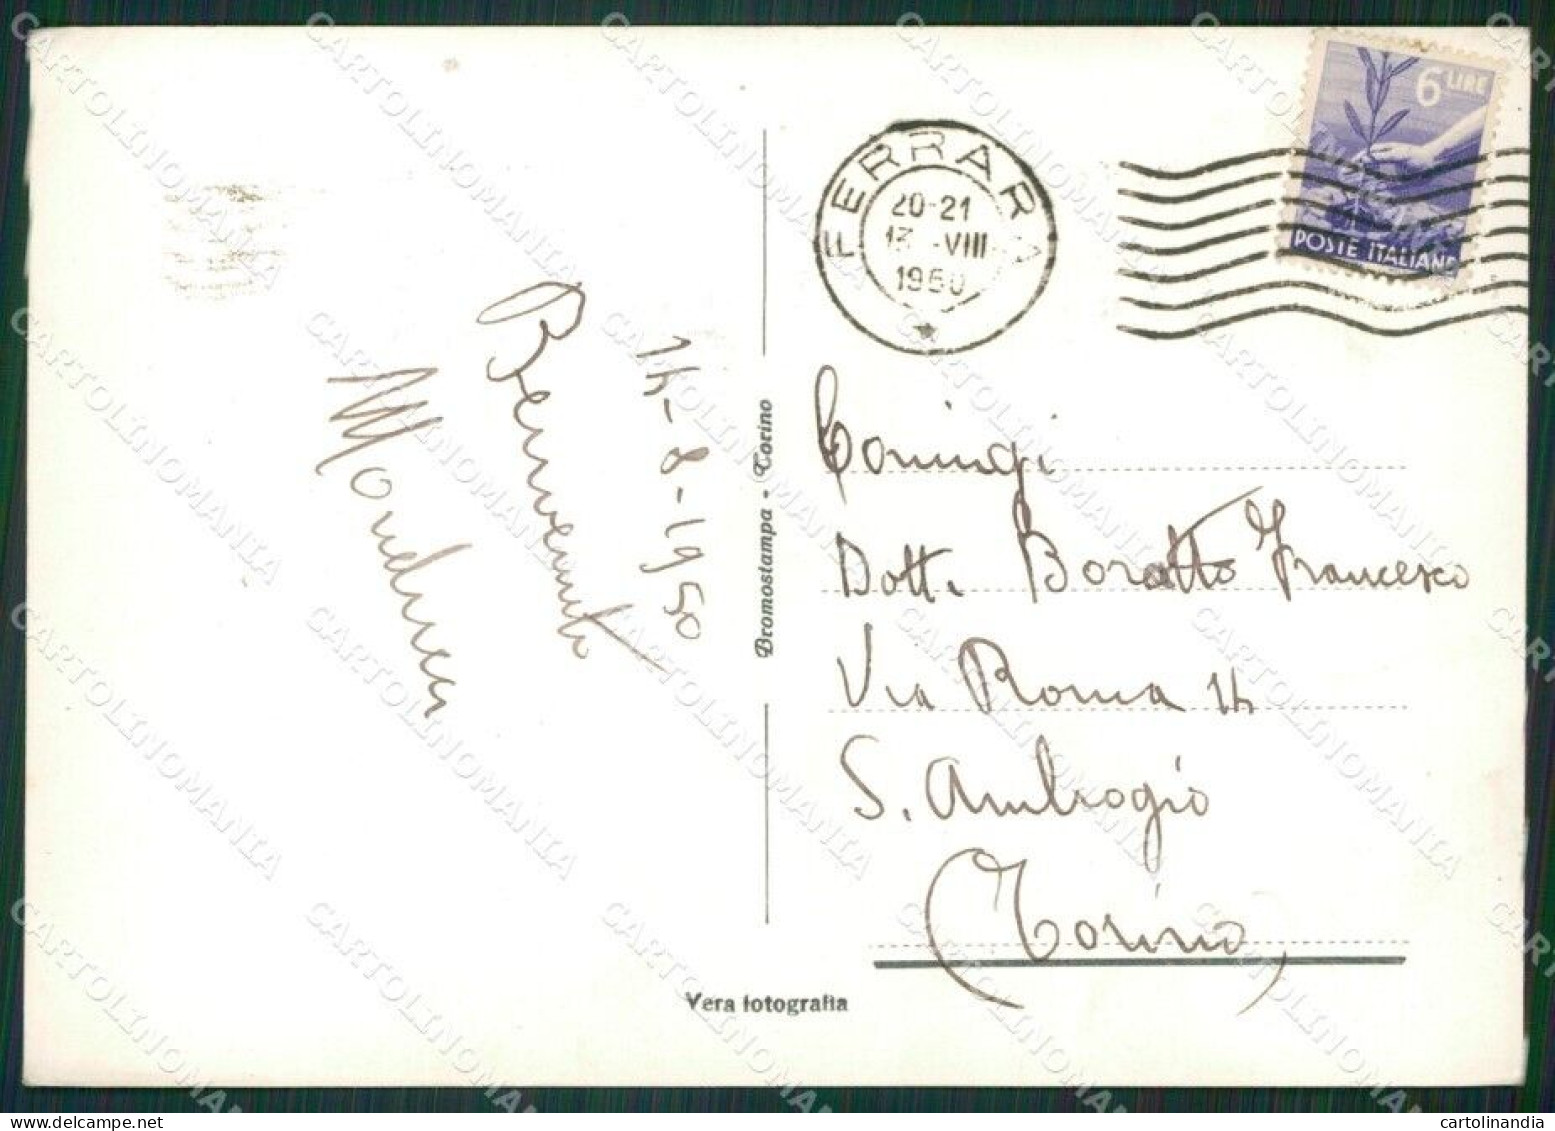 6 LIRE
POSTE ITALIANE
FERRARA
20-21
13 -VIII
1950
14-8-1950
Benvenuto
Bromostampa - Torino
Coniugi
Dott. Boratto Francesco
Via Roma 14
S. Ambrogio
(Torino)
Vera fotografia
CARTOLINOMANIA
cartolinandia